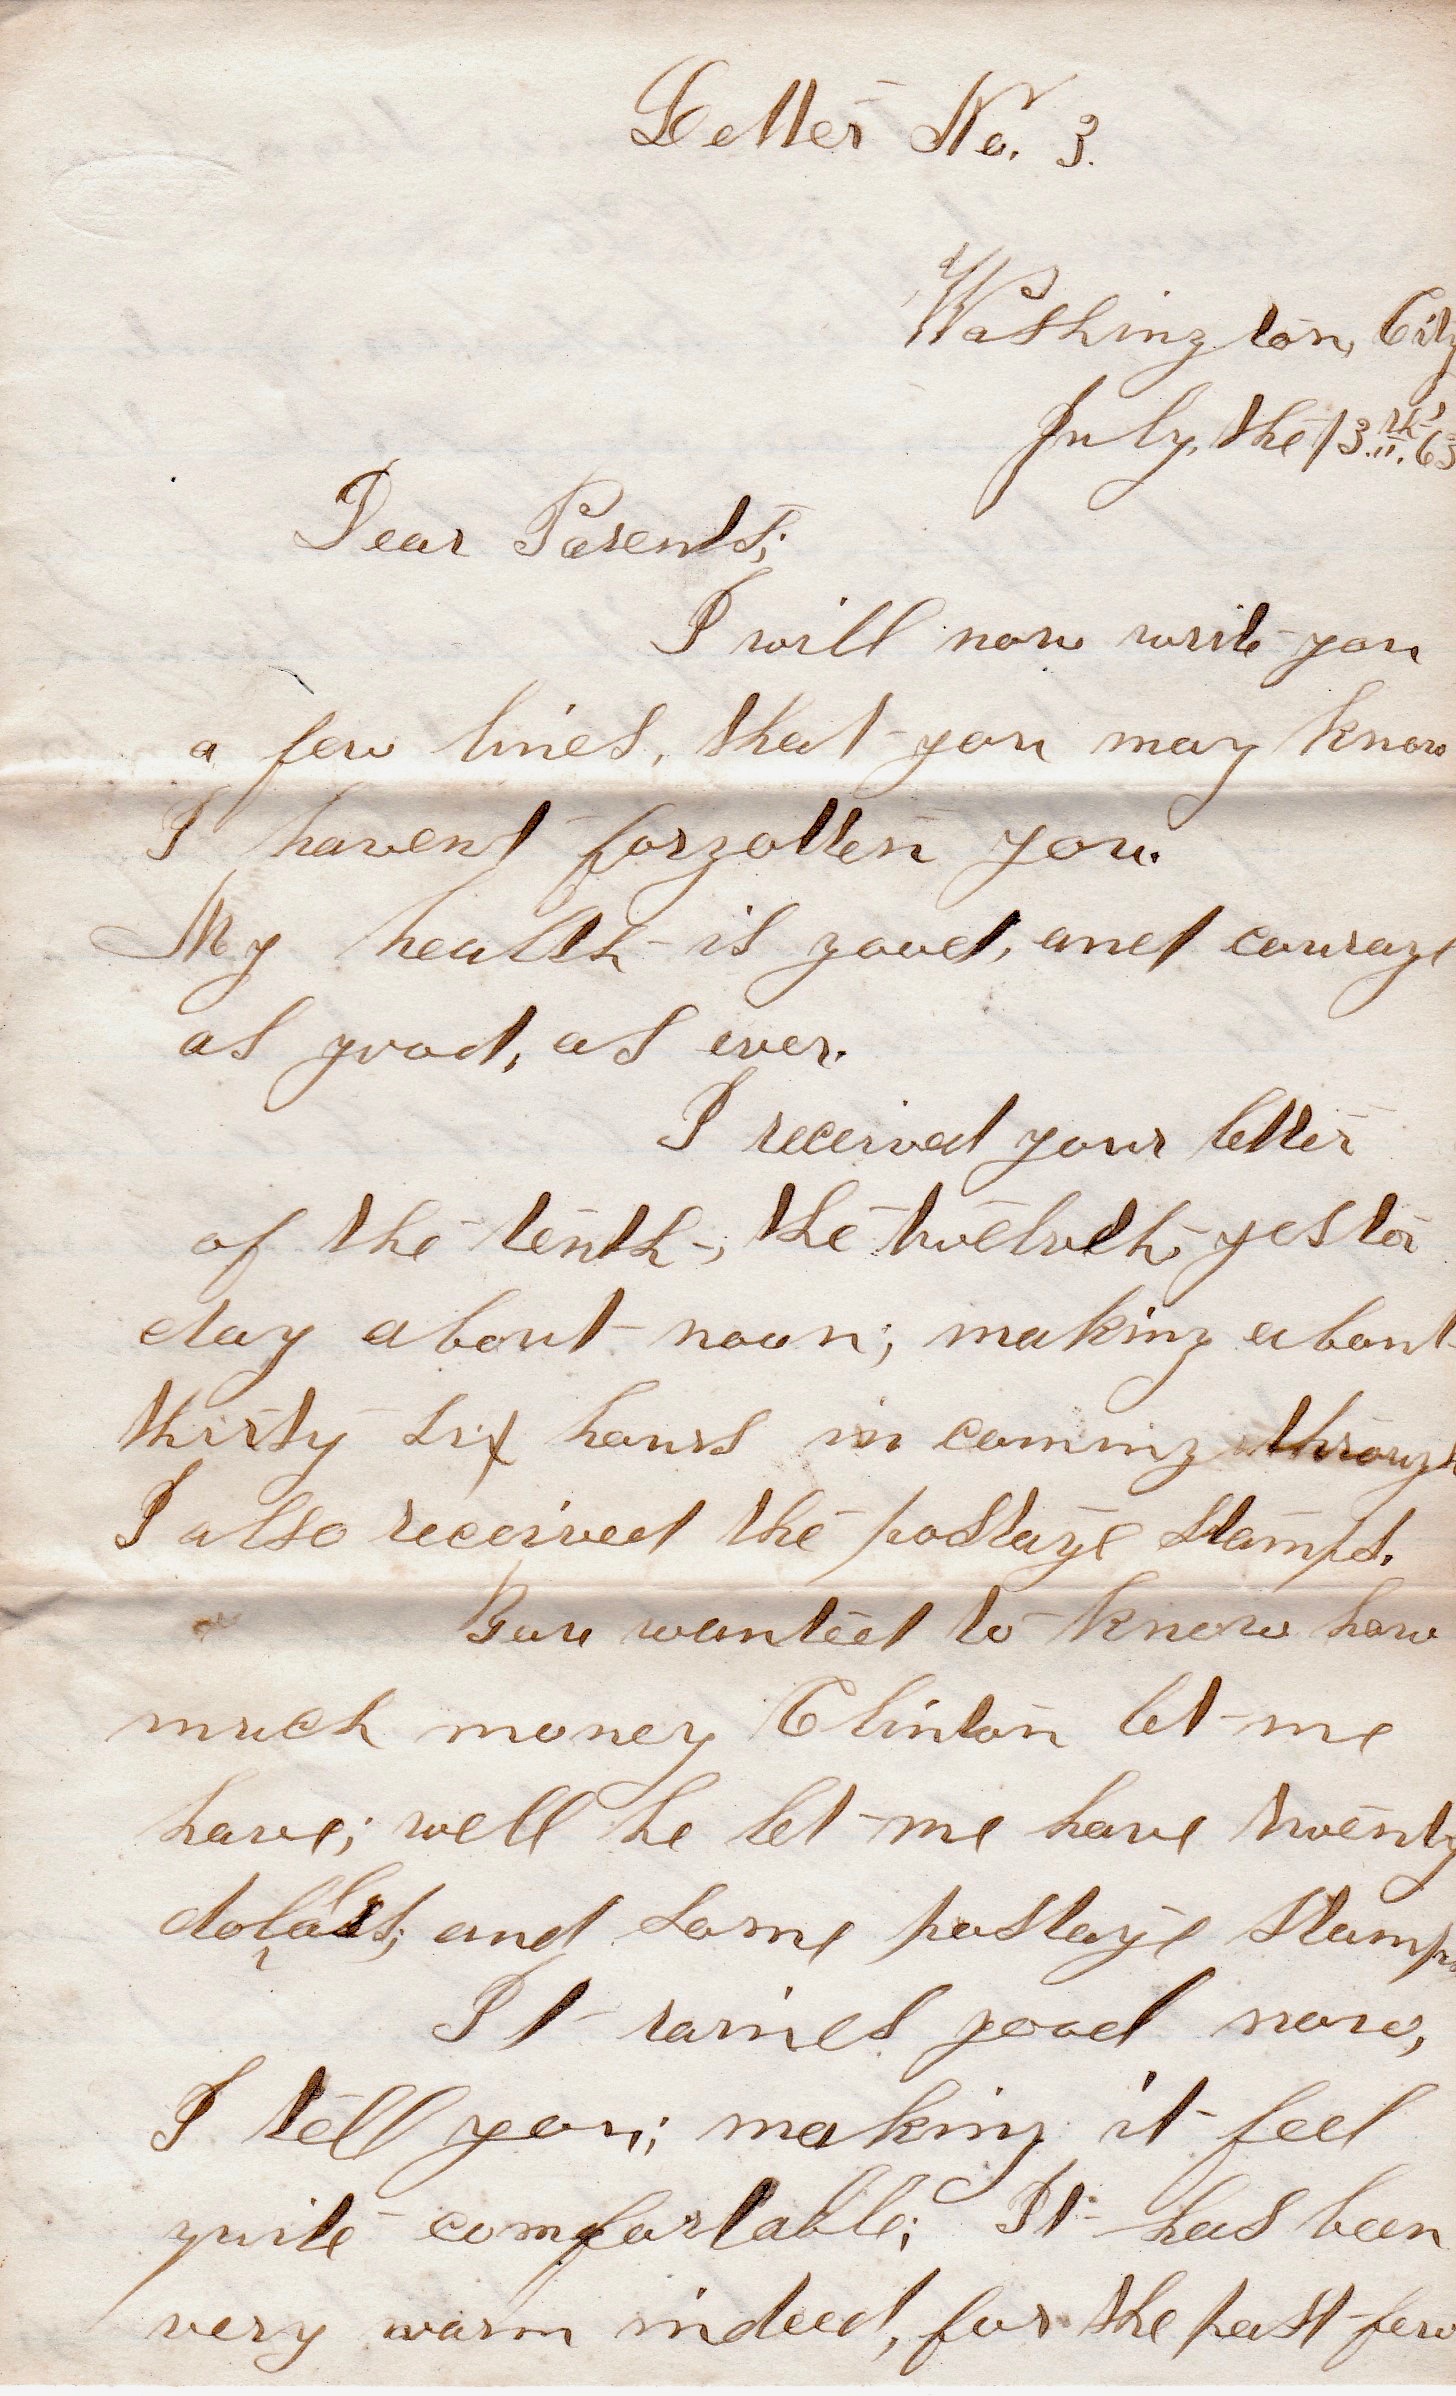 Letter No. 3.
Washington, City
July, the 13th, 63
Dear Parents;
I will now write you
a few lines, that you may know
I havent forgotten you.
My health is good, and courage
as good, as ever.
I received your letter
of the tenth, the twelvth, yester
day about noon; making about
thirty six hours in comming through
I also received the postage stamps.
You wanted to know how
much money Clinton let me
have; well he let me have twenty
dollars; and some postage stamps
It raines good now,
I tell you; making it feel
quite comfortable; It has been
very warm indeed, for the past few